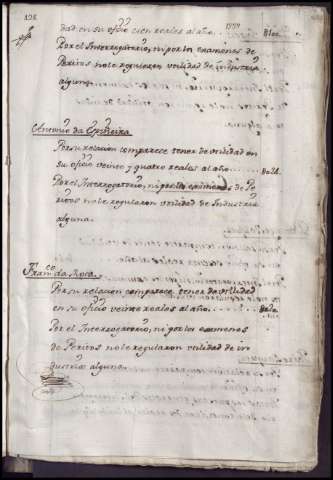 dad en su ofizio cien reales al año. B100.
Por el Interrogatorio, ni por los examenes de
Peritos no le regularon utilidad de industria
alguna.
Antonio da Espiñeira
Por su relazion comparece tener de utilidad en
su ofizio veinte y quatro reales al año. B024.
Por el Interrogatorio, ni por los examenes de Pe
ritos no le regularon utilidad de Industria
alguna.
Franco. da Roza.
Por su relazion comparece tener de utilidad
en su ofizio veinte reales al año. B020.
Por el Interrogatorio, ni por los examenes
de Peritos no le regularon utilidad de in
dustria alguna.